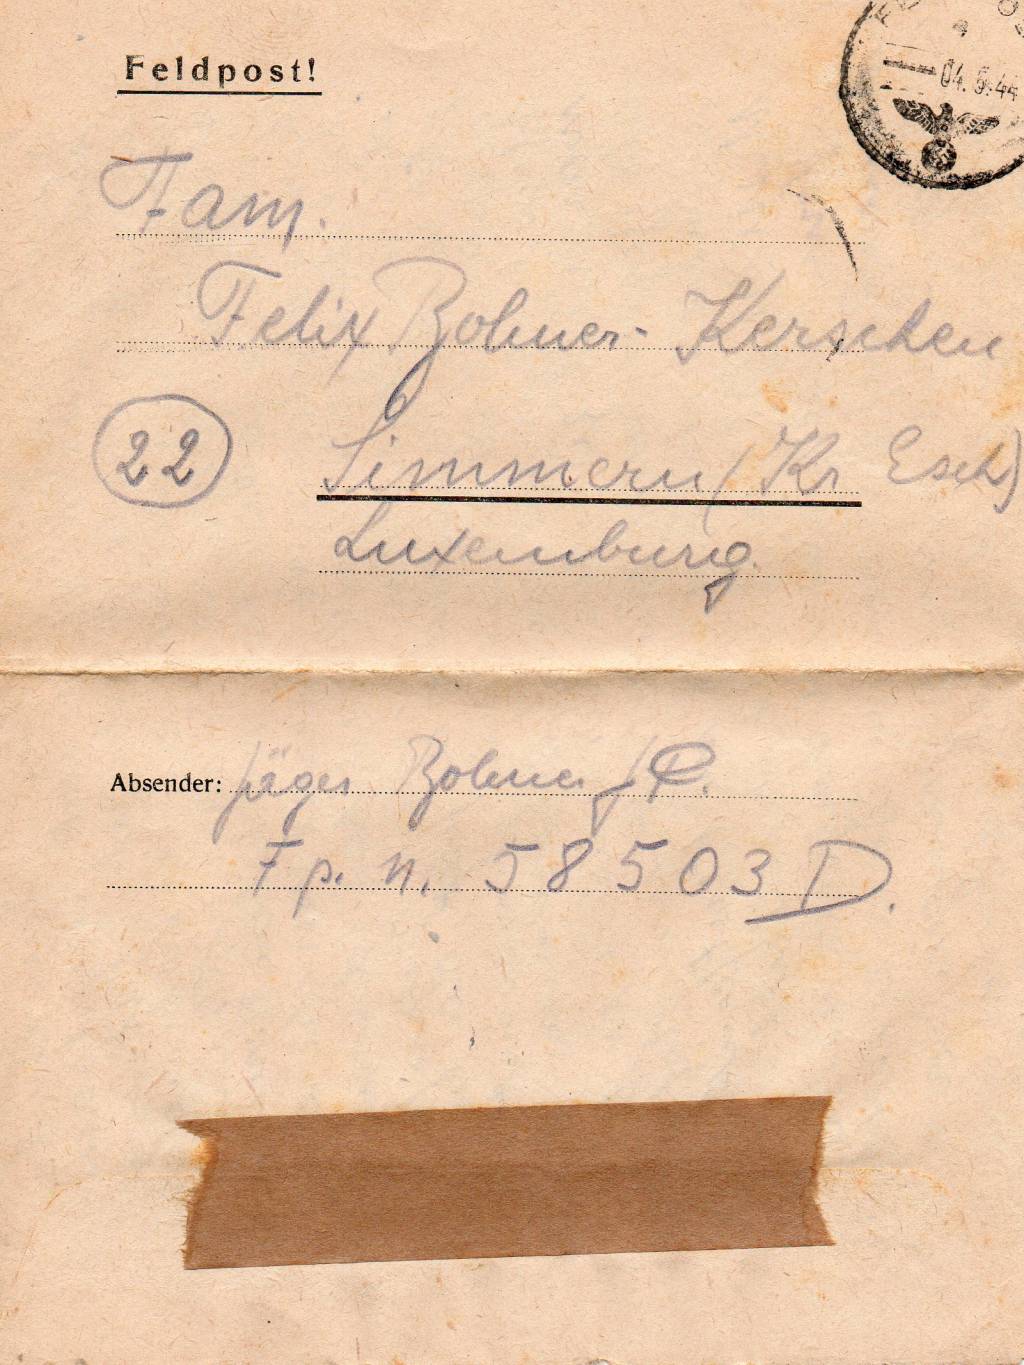 Feldpost!
04.5.44
Fam.
Felix Bohner-Kerschen
22
Simmern (Kr Esch)
Luxemburg.
Absender: Jäger Bohner J P.
Fp. n. 58503 D.